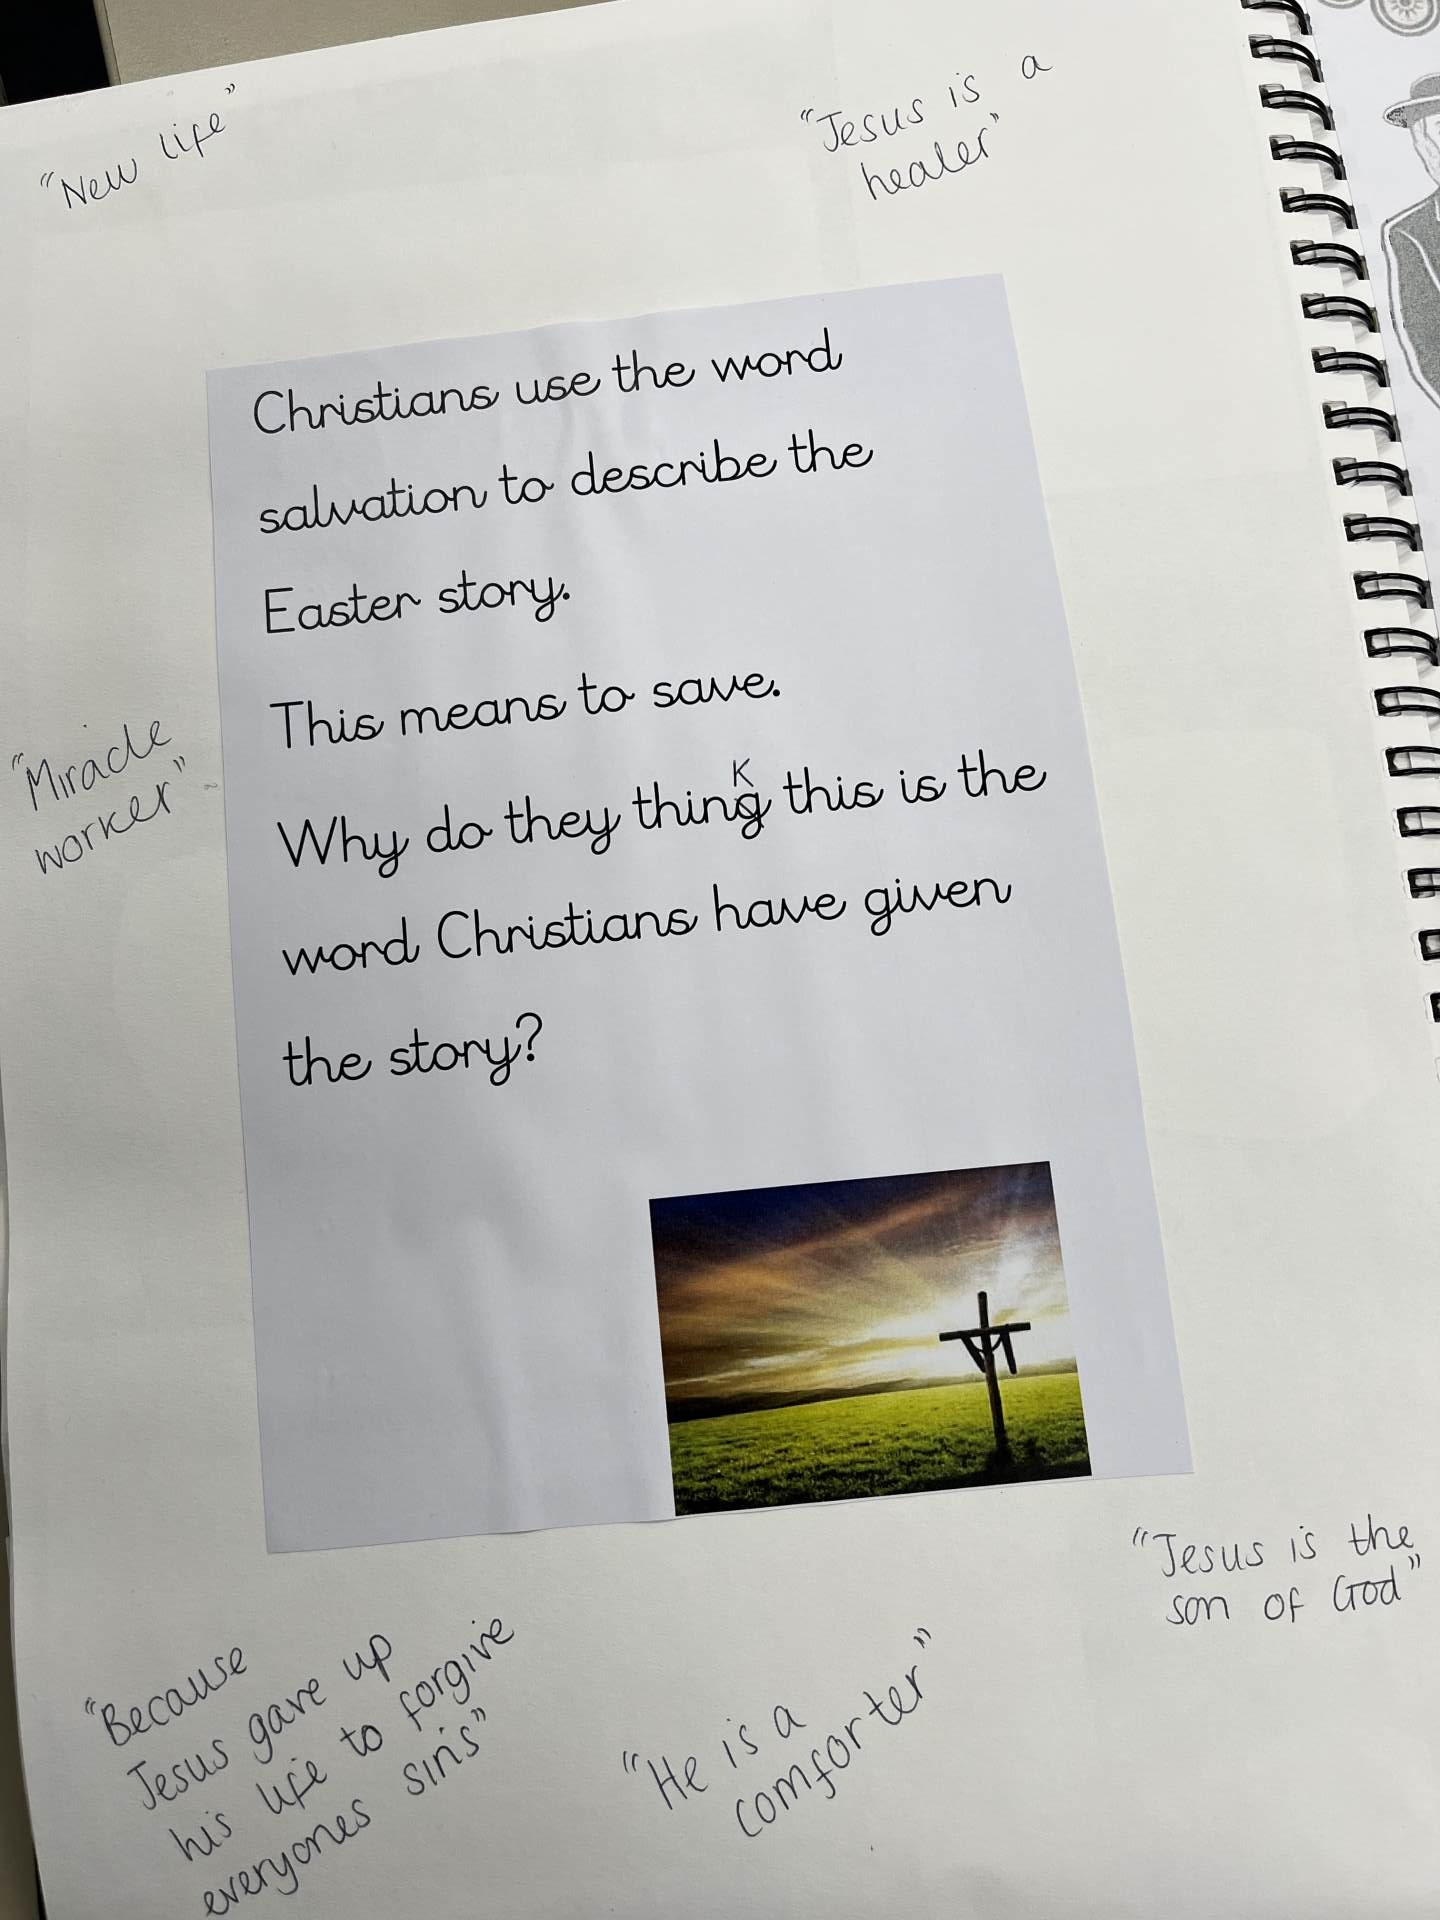 "New life"
"Jesus is a
healer"
Christians use the word
salvation to describe the
Easter story.
This means to save.
K
Why do they thing this is the
word Christians have given
the story?
"Miracle
worker"
"Jesus is the
son of God"
"Because
Jesus gave up
his life to forgive
everyones sins"
"He is a
comforter"